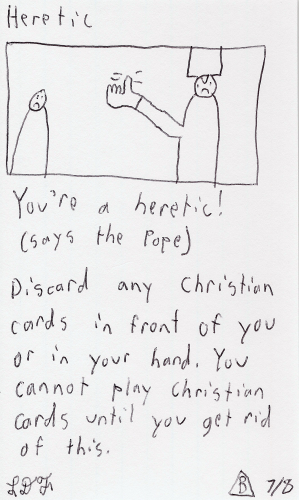 Heretic
You're a heretic!
(says the Pope)
Discard any Christian
cards in front of you
or in your hand. You
cannot play Christian
cards until you get rid
of this.
B 7/8